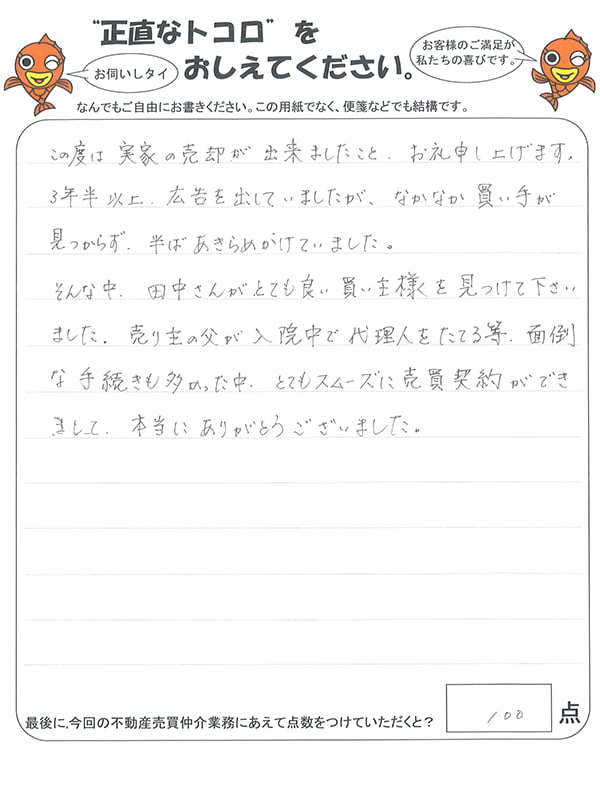 "正直なトコロ"を
おしえてください。
お伺いしタイ
お客様のご満足が
私たちの喜びです。
なんでもご自由にお書きください。この用紙でなく、便箋などでも結構です。
この度は実家の売却が出来ましたこと、お礼申し上げます。
3年半以上、広告を出していましたが、なかなか買い手が
見つからず、半ばあきらめかけていました。
そんな中、田中さんがとても良い買い主様を見つけて下さい
ました。売り主の父が入院中で代理人をたてる等、面倒
な手続きも多かった中、とてもスムーズに売買契約ができ
まして、本当にありがとうございました。
最後に,今回の不動産売買仲介業務にあえて点数をつけていただくと?
100
点